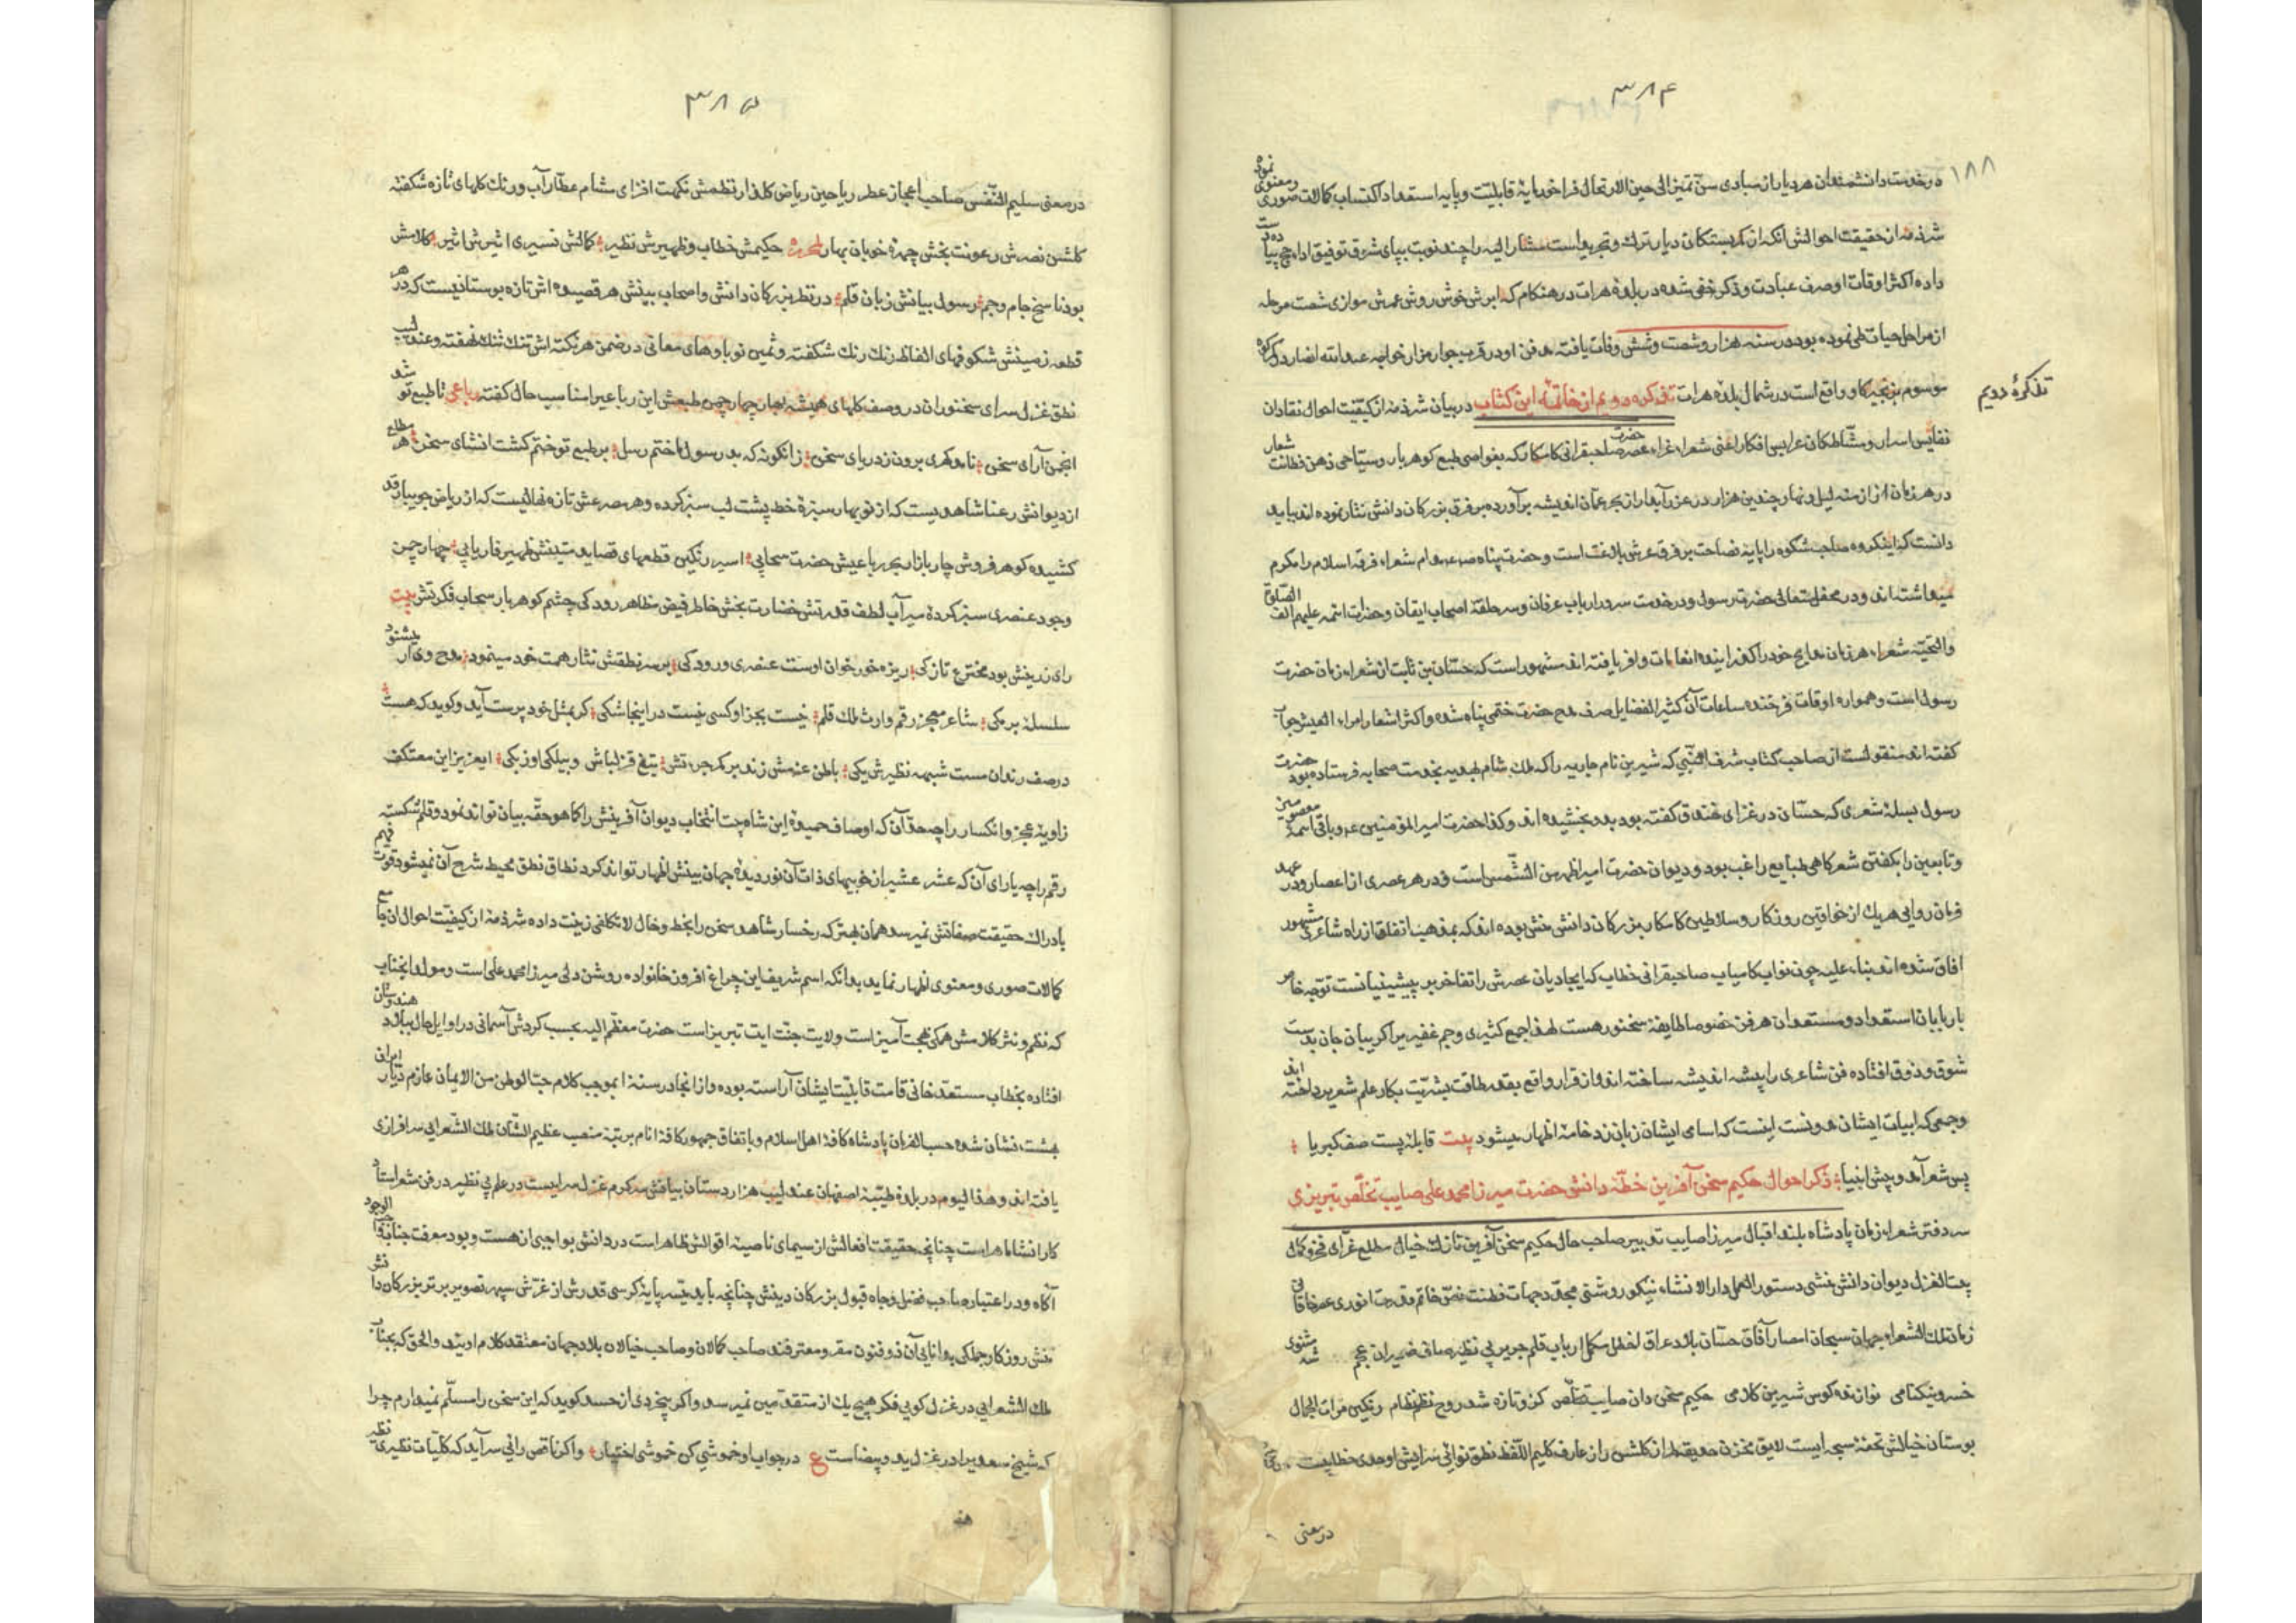 ۳۸۴
۱۸۸
در خدمت دانشمندان هر دیار از مبادی سن تمیز الی حین الارتحال فراخور مایهٔ قابلیت و پایه استعداد اکتساب کمالات صوری و معنوی نموده
شرذمه از حقیقت احوالش آنکه از کمربستکان دیار ترک و تجرید است مشار الیه را چند نوبت بپای شوق توفیق اداء حج پیاده دست
داده اکثر اوقات او صرف عبادت و ذکر خفی شده در بلدهٔ هرات در هنکام که ابرش خوش روش عمرش موازی شصت مرحله
از مراحل حیات طی نموده بود در سنه هزار و شصت و شش وفات یافته مدفن او در قرب جوار مزار خواجه عبدالله انصار در کوه
تذکرهٔ دویم
موسوم بزنجیرکاو واقع است در شمال بلدهٔ هرات تذکره دویم از خاتمهٔ این کتاب در بیان شرذمه از کیفیت احوال نقادان
نفایس اسرار و مشاطکان عرایس افکار اعنی شعراء غراء عصر حضرت صاحبقرانی کامکار که بغواصی طبع کوهربار و سیاحی ذهن فطانت شعار
در هر زمان از ازمنه لیل و نهار چندین هزار در عزر آبدار از بحر عمان اندیشه برآورده بر فرق بزرکان دانش نثار نموده اند بباید
دانست که اینکروه صاحب شکوه را پایه فصاحت بر فرق عرش بلاغت است و حضرت پناه صلعم مدام شعراء فرقه اسلام را مکرم
میداشته اند و در محفل متعالی حضرت رسول و در خدمت سردار ارباب عرفان و سر حلقه اصحاب ایقان و حضرات ائمه علیهم الف الصلوة
والتحیة شعراء هر زمان مدایح خود را کذرانیده انعامات وافر یافته اند مشهور است که حسّان بن ثابت از شعراء زمان حضرت
رسول است و همواره اوقات فرخنده ساعات آن کثیر الفضایل صرف مدح حضرت ختمی پناه شده و اکثر اشعار امراء القیس جواب
کفته اند منقولست از صاحب کتاب شرف النبی که شیرین نام جاریه را که ملک شام بهدیه بخدمت صحابه فرستاده بود حضرت
رسول بصلهٔ شعری که حسّان در غزای خندق کفته بود بدو بخشیده اند و کذا حضرت امیر المؤمنین ع و باقی ائمهٔ معصومین
و تابعین را بکفتن شعر کاهی طبایع راغب بود و دیوان حضرت امیر اظهر من الشمس است و در هر عصری از اعصار و در عهد
فرمان روایی هریک از خواقین روزکار و سلاطین کامکار بزرکان دانش منش بوده اند که بمذهب اتفاق از راه شاعری مشهور
افاق شده اند بناء علیه چون نواب کامیاب صاحبقرانی خطاب که ایجادیان عصرش را تفاخر بر پیشینیانست توجه خاص
با ربابان استعداد و مستعدان هر فن خصوصا طایفهٔ سخنور هست لهذا جمع کثیری و جم غفیر را کریبان جان بدست
شوق و ذوق افتاده فن شاعری را پیشه اندیشه ساخته اند و از قرار واقع بقدر طاقت بشریت بکار علم شعر پرداخته اند
و جمعی که ابیات ایشان مدونست اینست که اسامی ایشان زبان زد خامه اظهار میشود بیت قابله پست صف کبریا
پس شعر آمد و پیش انبیا ذکر احوال حکیم سخن آفرین خطّه دانش حضرت میرزا محمد علی صایب تخلّص تبریزی
سر دفتر شعراء زمان پادشاه بلند اقبال میرزا صایب تدبیر صاحب حال حکیم سخن آفرین نازک خیال مطلع غرّای فخر و کمال
بیت الغزل دیوان دانش منشی دستور العمل دار الانشاء نیکو روشنی مجدّد جهات فطنت نصّ خاتم مدحت انوری عصر خاقانی
زمان ملک الشعراء جهان سبحان امصار آفاق حسّان بلاد عراق لفظ مکمل ارباب قلم جریر بی نظیر صافی ضمیران عجم
خسرو نیکنامی نوازنده کوس شیرین کلامی حکیم سخن دان صایب تخلّص کزو تازه شد روح نظم نظام رنکین مرات الجمال
بوستان خیالش تحفة سجه ایست لایق مخزن حدیقه طراز کلشن راز عارف کلیم اللفظ نطق نوائی سرایش اوحدی خطابیست
در معنی
۳۸۵
در معنی سلیم النّفسی صاحب اعجاز عطر ریاحین ریاض کلذار نظمش نکهت افزای مشام عطّار آب و رنک کلهای تازه شکفته
کلشن نصرش رعونت بخش چهرهٔ خوبان بهار لمحرره حکیمش خطاب و ظهیرش نظیر کمالش نسیری اثیرش اثیر کلامش
بود ناسخ جام و جم رسول بیانش زبان قلم در نظر بزرکان دانش و اصحاب بینش هر قصیده اش تازه بوستانیست که در هر
قطعه زمینش شکوفهای الفاظ رنک رنک شکفته و ثمین نوباوهای معانی در ضمن هر نکته اش تنک تنک نهفته و عندلیب
نطق غزل سرای سخنوران در وصف کلهای همیشه بهار چهار چمن طبعش این رباعیرا مناسب حال کفته رباعی تا طبع تو شد
انجمن آرای سخن نامد کهری برون ز دریای سخن زانکونه که بد رسول ما ختم رسل بر طبع تو ختم کشت انشای سخن هر مطلع
از دیوانش رعنا شاهدیست که از نوبهار سبزهٔ خط پشت لب سبز کرده و هر مصرعش تازه نهالیست که از ریاض جویبار قد
کشیده کوهر فروش چار بازار بحر رباعیش حضرت سحابی اسیر رنکین قطعهای قصاید متینش ظهیر فاریابی چهار چمن
وجود عنصری سبز کردهٔ میرآب لطف قدرتش خضارت بخش خاطر فیض مظاهر رودکی چشم کوهربار سحاب فکرتش بیت
رای زرینش بود مخترع تازکی ریزه خور خوان اوست عنصری و رودکی بر سر نطقش نثار همت خود مینمود مدح وی ار میشنود
سلسلهٔ برمکی شاعر معجز رقم وارث ملک قلم نیست بجز او کسی نیست در اینجا شکی کر بمثل خود پرست آید و کوید که هست
در صف رندان مست شبهه نظیرش یکی باطن عزمش زند بر کمر جرءتش تیغ قزلباش و بیلکی اوزبکی ایعزیز این معتکف
زاویهٔ عجز و انکسار را چه حدّ آن که اوصاف حمیدهٔ این شاه بیت انتخاب دیوان آفرینش را کما هو حقّه بیان تواند نمود و قلم شکسته
رقم را چه یارای آن که عشر عشیر از خوبیهای ذات آن نور دیدهٔ جهان بینش اظهار تواند کرد نطاق نطق محیط شرح آن نمیشود قوّت فهم
بادراک حقیقت صفاتش نمیرسد همان بهتر که رخسار شاهد سخن را بخط و خال لا تکلفی زینت داده شرذمه از کیفیت احوال ان جامع
کمالات صوری و معنوی اظهار نماید بدانکه اسم شریف این چراغ افروز خانواده روشن دلی میرزا محمد علی است و مولد انجناب
که نظم و نثر کلامش همکی بهجت آمیز است ولایت جنّت ایت تبریز است حضرت معظّم الیه بحسب کردش آسمانی در اوایل حال ببلاد هندوستان
افتاده بخطاب مستعد خانی قامت قابلیت ایشان آراسته بوده و از انجا در سنه بموجب کلام حبّ الوطن من الایمان عازم دیار ایران
بهشت نشان شده حسب الفرمان پادشاه کافهٔ اهل اسلام و باتفاق جمهور کافهٔ انام برتبهٔ منصب عظیم الشّان ملک الشّعرایی سرافرازی
یافته اند و هذا الیوم در بلدهٔ طیّبهٔ اصفهان عندلیب هزار دستان بیانش مکرم غزل سرایست در علم بی نظیر در فن شعر استاد
کار انشا ماهر است چنانچه حقیقت افعالش از سیمای ناصیه اقوالش ظاهر است در دانش بواجبی از هست و بود معرفت جناب واجب الوجود
آکاه و در اعتبار صاحب فضل و جاه قبول بزرکان دینش چنانچه باید میّسر پایهٔ کرسی قدرش از عرش سپهر تصویر برتر بزرکان دانش
منش روزکار جملکی بدانایی آن ذو فنون مقر و معترفند صاحب کمالان و صاحب خیالان بلاد جهان معتقد کلام اویند والحق که بجناب
ملک الشعرایی در غزل کویی فکر هیچ یک از متقدمین نمیرسد و اکر بیخردی از حسد کوید که این سخن را مسلّم نمیدارم چرا
که شیخ سعدیرا در غزل ید و بیضاست ع در جواب او خموشی کن خموشی اختیار و اکر ناقص رائی سرآید که کلّیات نظیری نظیر